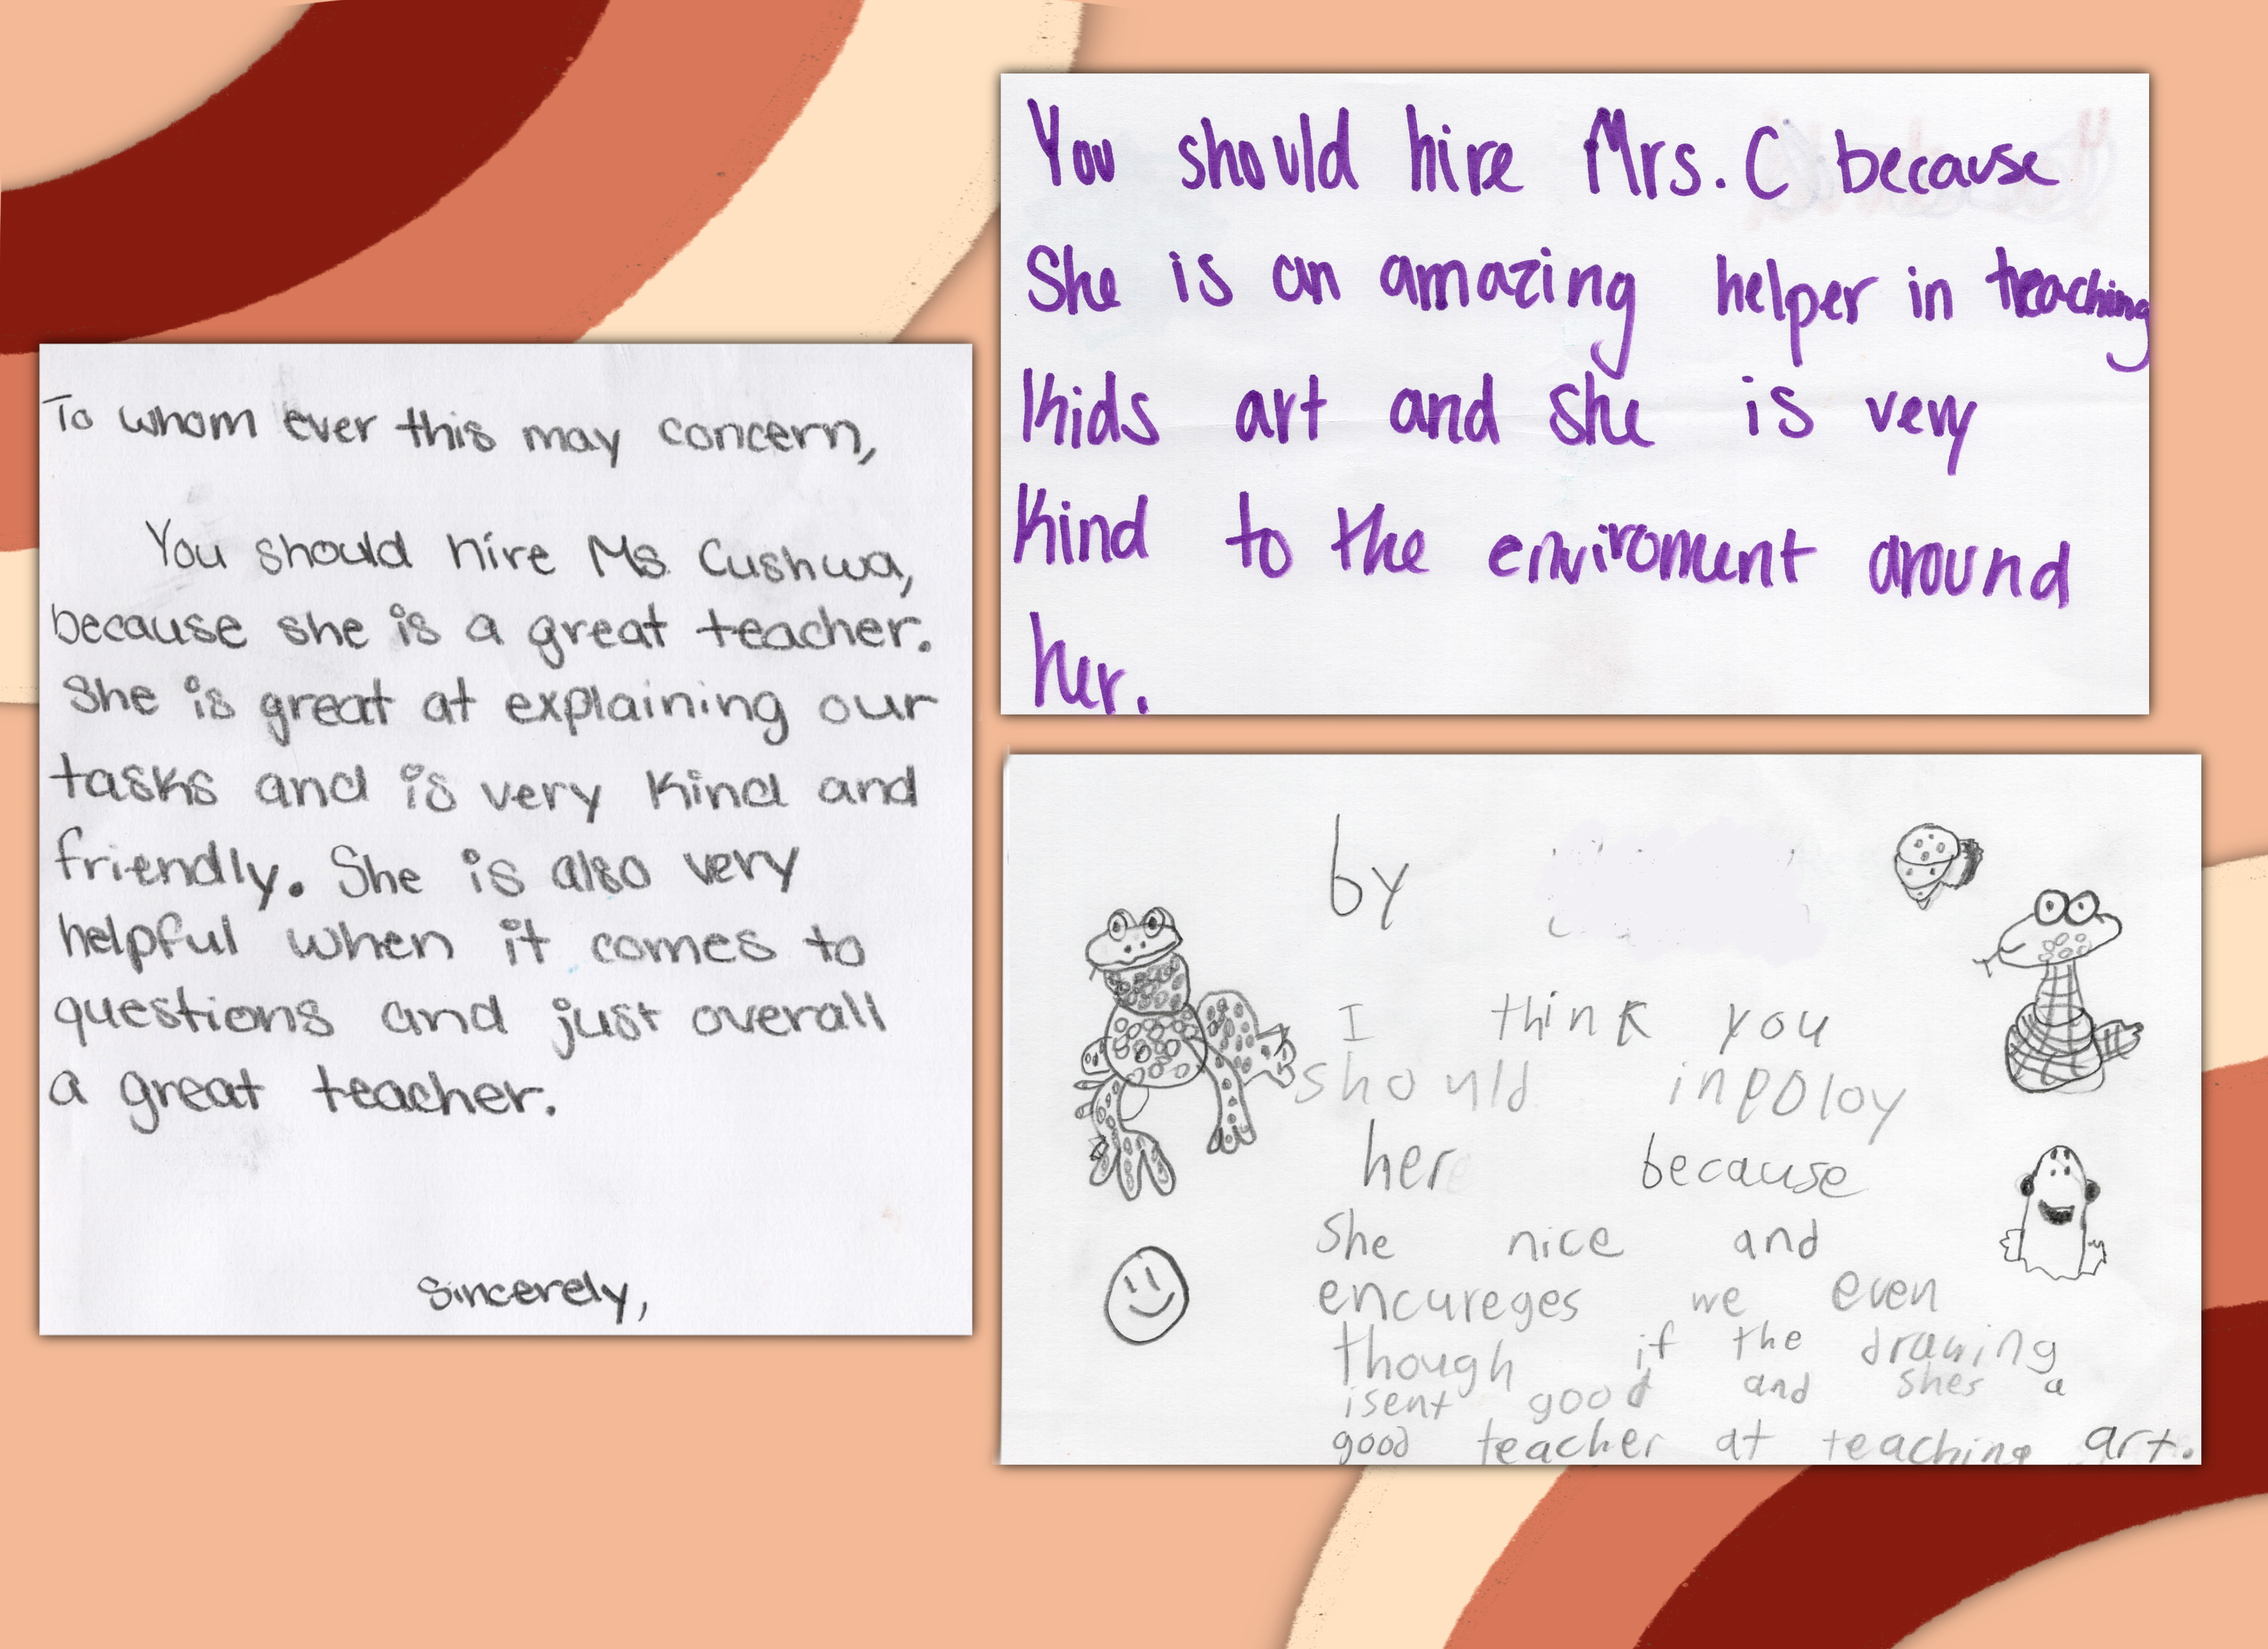 To whom ever this may concern,
You should hire Ms. Cushwa,
because she is a great teacher.
She is great at explaining our
tasks and is very kind and
friendly. She is also very
helpful when it comes to
questions and just overall
a great teacher.
Sincerely,
You should hire Mrs. C because
She is an amazing helper in teaching
Kids art and she is very
Kind to the enviroment around
her.
by
I think you
should inpoloy
her because
She nice and
encureges we even
though if the drawing
isent good and shes a
good teacher at teaching art.